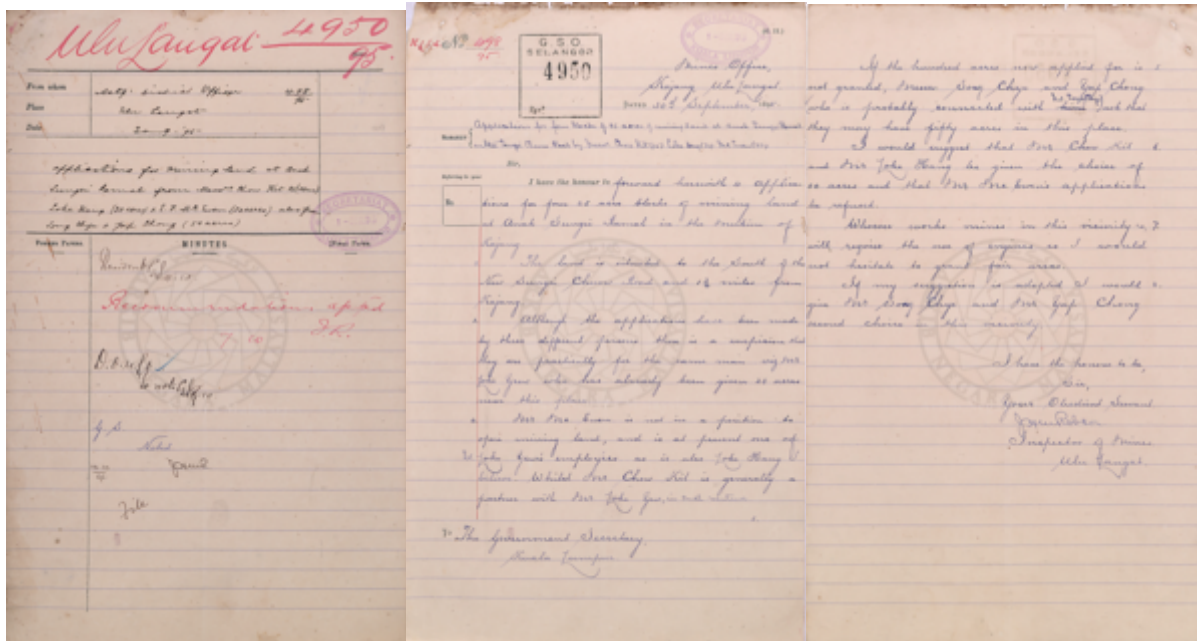 Ulu Langat 4950
95.
From whom
Actg: District Officer
Place
Ulu Langat
Date
Applications for mining land at Anak
Sungei Ramal from Messrs Chow Kit
Loke Hang (50 acres) & E. F. McEwan (50 acres) also from
Song Chye & Yap Chong (50 acres)
Former Papers.
MINUTES
Other Papers.
Resident
Recommendations appd
J.R.
D.O.
to note
G S
Noted
File
No 498
95
G. S. O.
SELANGOR
4950
Mines Office,
Kajang Ulu Langat
Dated 30th September, 1895.
Sir,
I have the honour to forward herewith 2 applica
tions for four 50 acre blocks of mining land
at Anak Sungei Ramal in the Mukim of
Kajang
The land is situated to the South of the
New Sungei Chua Road and 1½ miles from
Kajang
Although the applications have been made
by three different persons there is a suspicion that
they are practically for the same man viz Mr
Loke Yew who has already been given 50 acres
near this place
Mr McEwan is not in a position to
open mining land, and is at present one of
Loke Yew's employees as is also Loke Hang I
believe. Whilst Mr Chow Kit is generally a
partner with Mr Loke Yew, in such
To The Government Secretary,
Kuala Lumpur
If the hundred acres now applied for is
not granted, Messrs Song Chye and Yap Chong
who is probably connected with
they may have fifty acres in this place.
I would suggest that Mr Chow Kit
and Mr Loke Hang be given the choice of
50 acres and that Mr McEwan's applications
be refused.
Whereas works mines in this vicinity
will require the use of engines so I would
not hesitate to grant fair areas.
If my suggestion is adopted I would
give Mr Song Chye and Mr Yap Chong
second choice in this vicinity
I have the honour to be,
Sir,
Your Obedient Servant
Inspector of Mines
Ulu Langat.